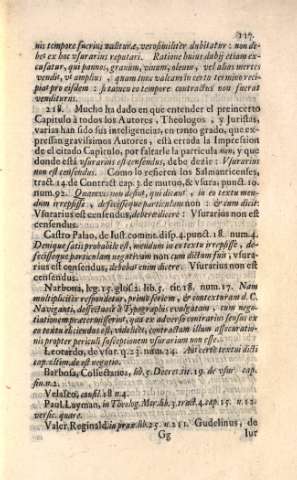 127.
nis tempore fuerint valituræ, verosimiliter dubitatur: non de-
bet ex hoc vsurarius reputari. Ratione huius dubij etiam ex-
cusatur, qui pannos, granum, vinum, oleum, vel alias merces
vendit, vt amplius, quàm tunc valeant in certo termino reci-
piat pro eisdem: si tamen ea tempore contractus non fuerat
venditurus.
218. Mucho ha dado en que entender el preincerto
Capitulo à todos los Autores, Theologos, y Juristas,
varias han sido sus inteligencias, en tanto grado, que ex-
pressan gravissimos Autores, està errada la Impression
de el citado Capitulo, por faltarle la particula non, y que
donde està vsurarius est censendus, debe dezir: Vsurarius
non est censendus. Como lo refieren los Salmanticenses,
tract. 14. de Contract. cap. 3. de mutuo, & vsura, punct. 10.
num. 92.
Vsurarius est censendus, debere dicere: Vsurarius non est
censendus.
Castro Palao, de Iust. comm. disp. 4. punct. 18. num. 4.
Denique satis probabile est, mendum in ex textu irrepsisse, de-
fecisseque particulam negativam non cum dictum fuit, vsura-
rius est censendus, debebat enim dicere. Vsurarius non est
censendus.
Narbona, leg. 15. glos. 2. lib. 5. tit. 18. num. 17. Nam
multipliciter respondetur, primò seriem, & contexturam d. C.
Naviganti, defectuosè à Typographis evulgatam, cum nega-
tionem prætermisserint, qua ex adverso contrarius sensus ex
eo textu eliciendus est, videlicet, contractum istum assecuratio-
nis propter periculi susceptionem vsurarium non esse.
Leonardo, de vsur. q. 23. num. 24. Aut certè textui dicti
cap. vltim. de est negatio.
Barbosa, Collectanea, lib. 5. Decret. tit. 19. de vsur. cap.
fin. n. 2.
Velasco, consil. 18 n. 4.
Paul. Layman, in Theolog. Mor. lib. 3. tract. 4. cap. 15. n. 12.
versic. quare.
Valer. Reginald. in prax. lib. 25. n. 211. Gudelinus, de
Gg Iur